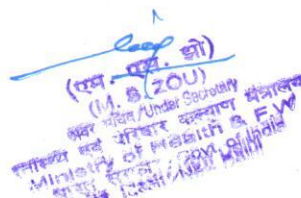 (एम. एस. झो)
(M. S. ZOU)
अवर सचिव/Under Secretary
स्वास्थ्य एवं परिवार कल्याण मंत्रालय
Ministry of Health & F.W
भारत सरकार/Govt. of India
नई दिल्ली/New Delhi